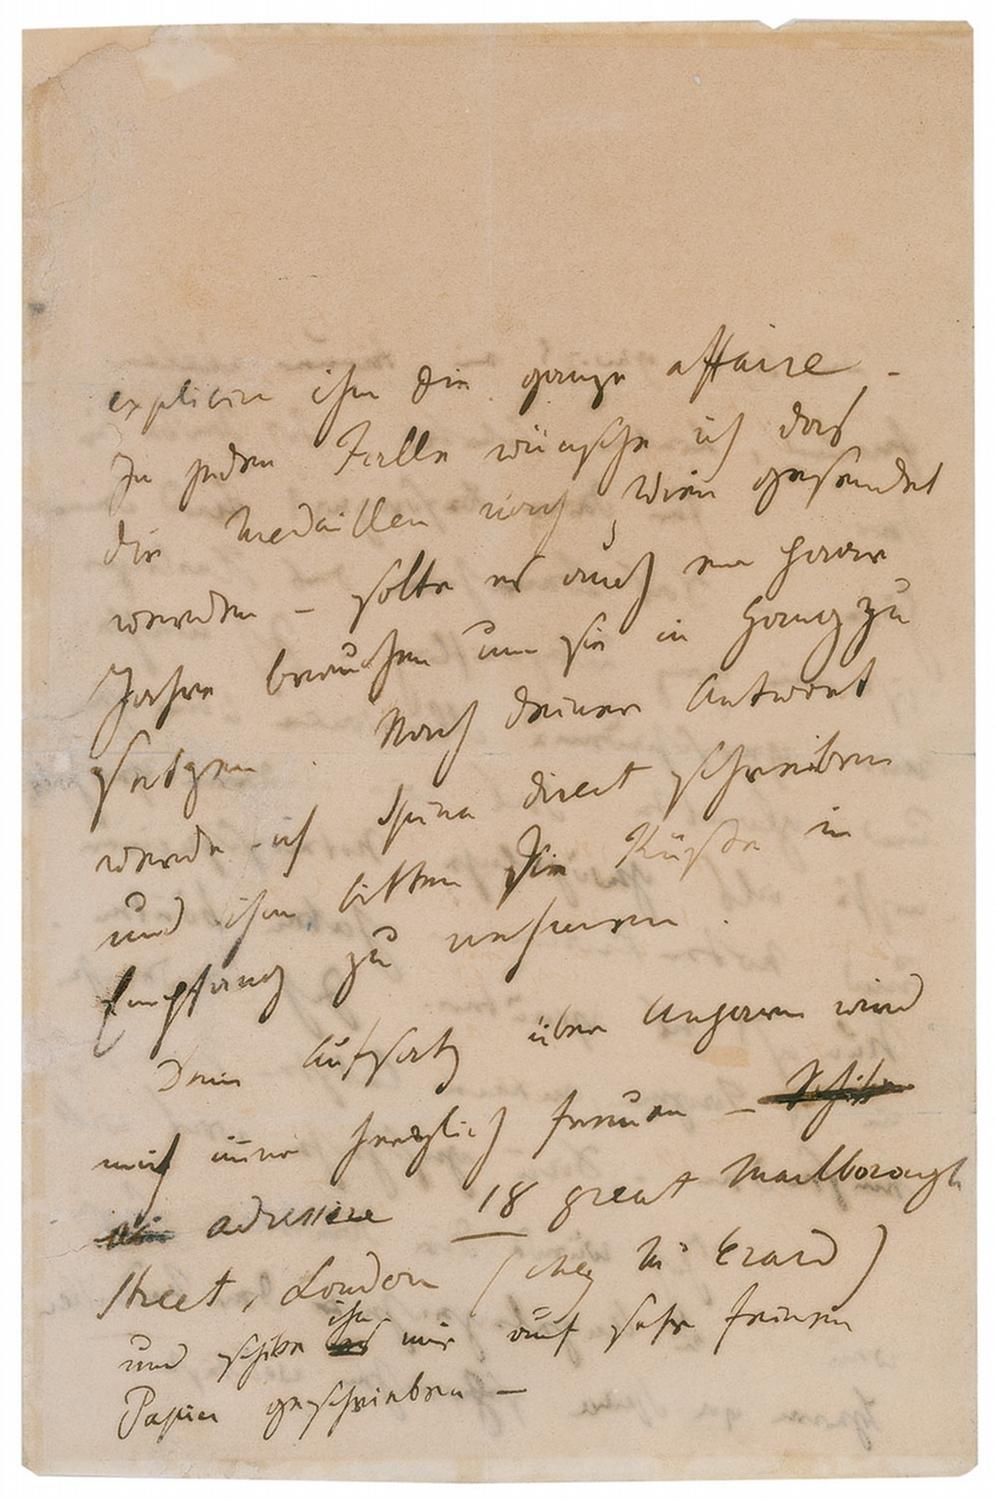 explicire ihm die ganze affaire. –
In jeden Falle wünsche ich das
die Medaillen nach Wien gesendet
werden – sollte es auch ein paar
Jahre brauchen um sie in Gang zu
setzen. Nach deiner Antwort
werde ich Spina direct schreiben
und ihm bitten die Küste in
Empfang zu nehmen.
Dein Aufsatz über Ungarn wird
mich immer herzlich freuen – Schike
adressire 18 great Marlborough
Street, London (chez Mr Erard)
und schike ihn mir auf sehr feinen
Papier geschrieben –